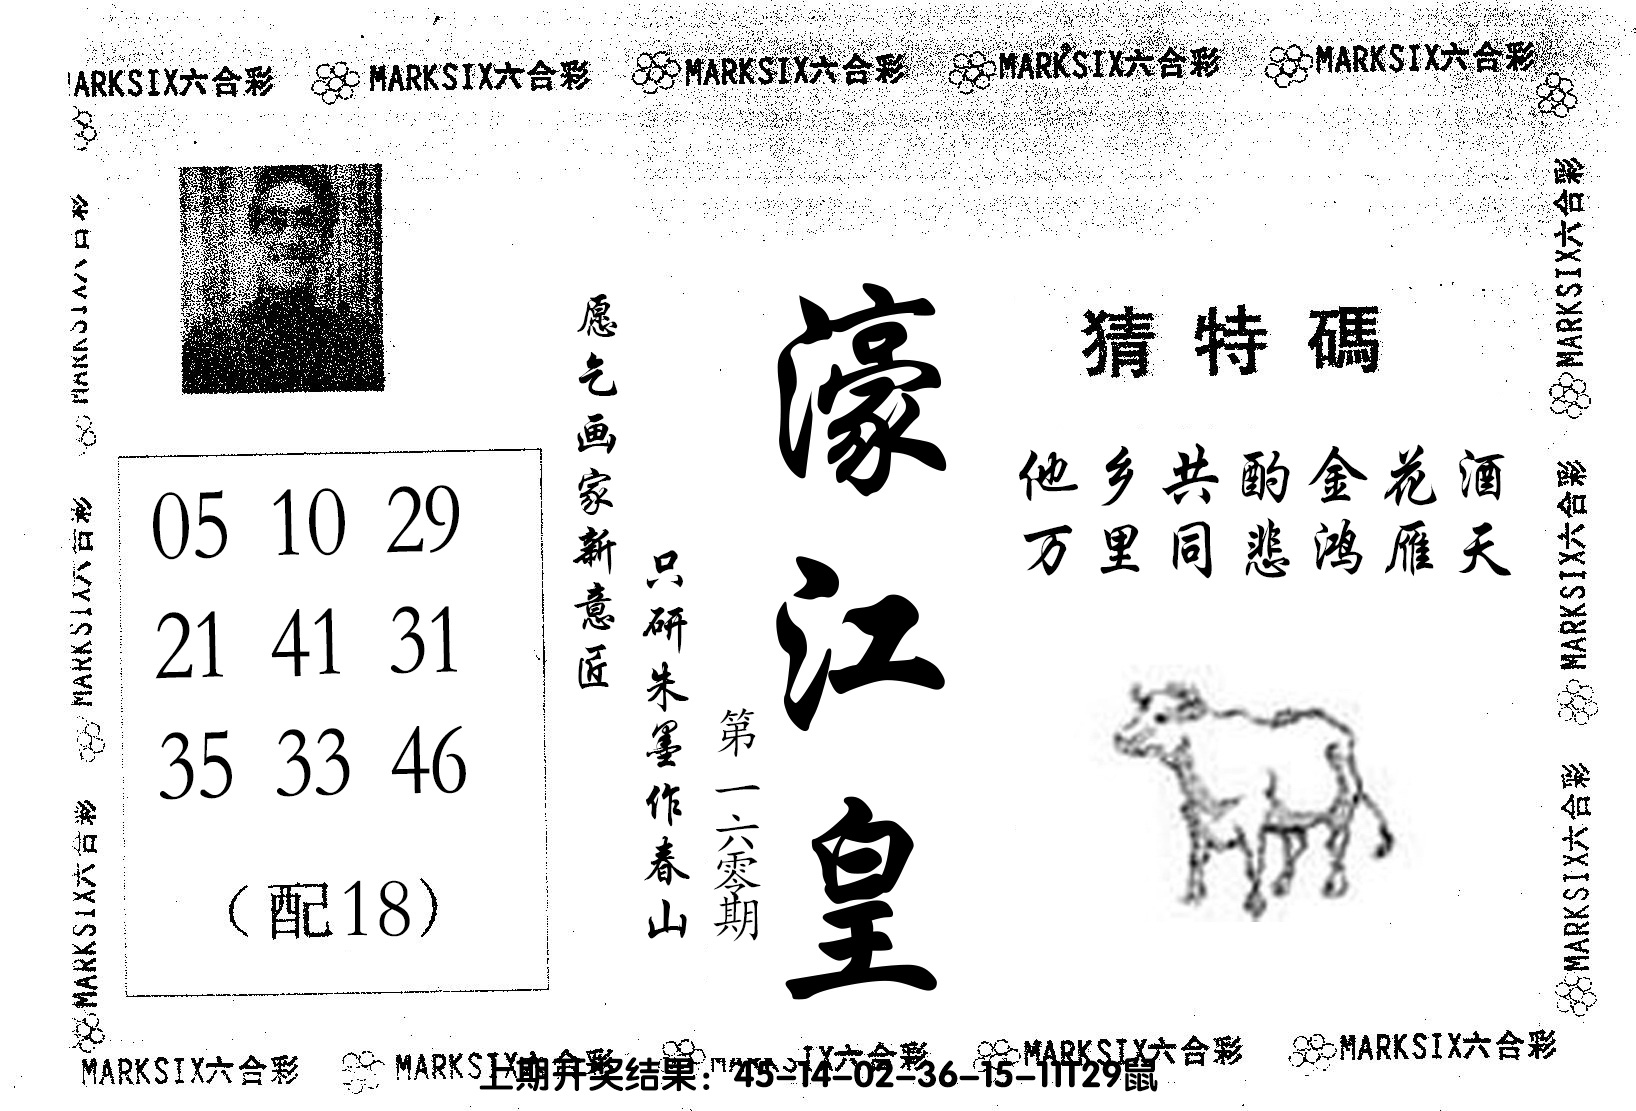 MARKSIX六合彩 MARKSIX六合彩 MARKSIX六合彩 MARKSIX六合彩
MARKSIX六合彩
MARKSIX六合彩
MARKSIX六合彩
MARKSIX六合彩
MARKSIX六合彩
MARKSIX六合彩
05 10 29
21 41 31
35 33 46
（配18）
愿乞画家新意匠
只研朱墨作春山
第一六零期
濠江皇
猜特碼
他乡共酌金花酒
万里同悲鸿雁天
MARKSIX六合彩 MARKSIX六合彩 MARKSIX六合彩 MARKSIX六合彩
上期开奖结果：45-14-02-36-15-11T29鼠